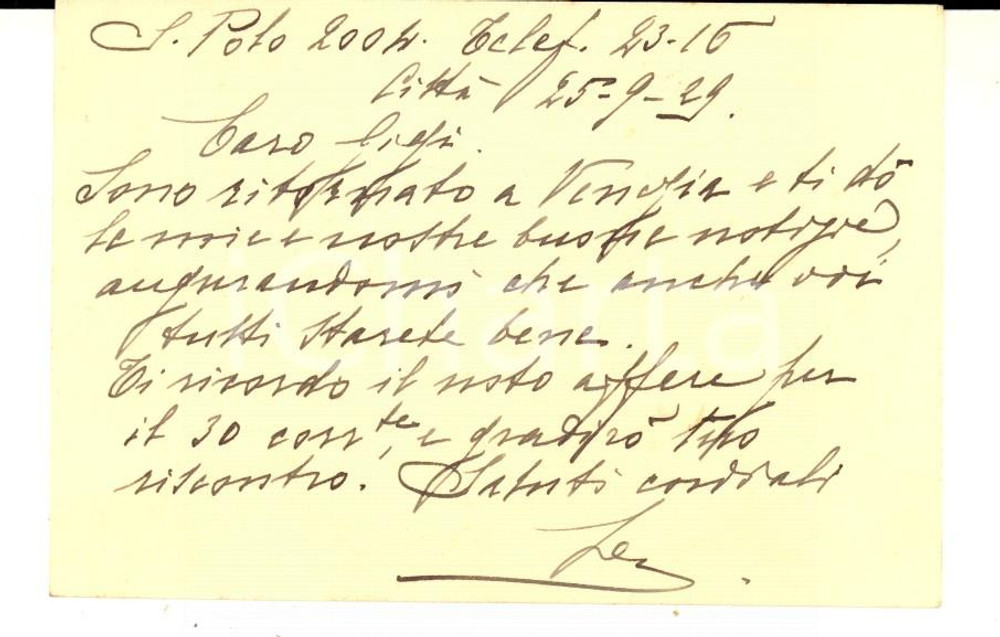 S. Polo 2004. Telef. 23-16
Città 25-9-29.
Caro Gigi.
Sono ritornato a Venezia e ti dò
le mie e nostre buone notizie,
augurandomi che anche voi
tutti starete bene.
Ti ricordo il noto affare per
il 30 corr.te, e gradirò tuo
riscontro. Saluti cordiali